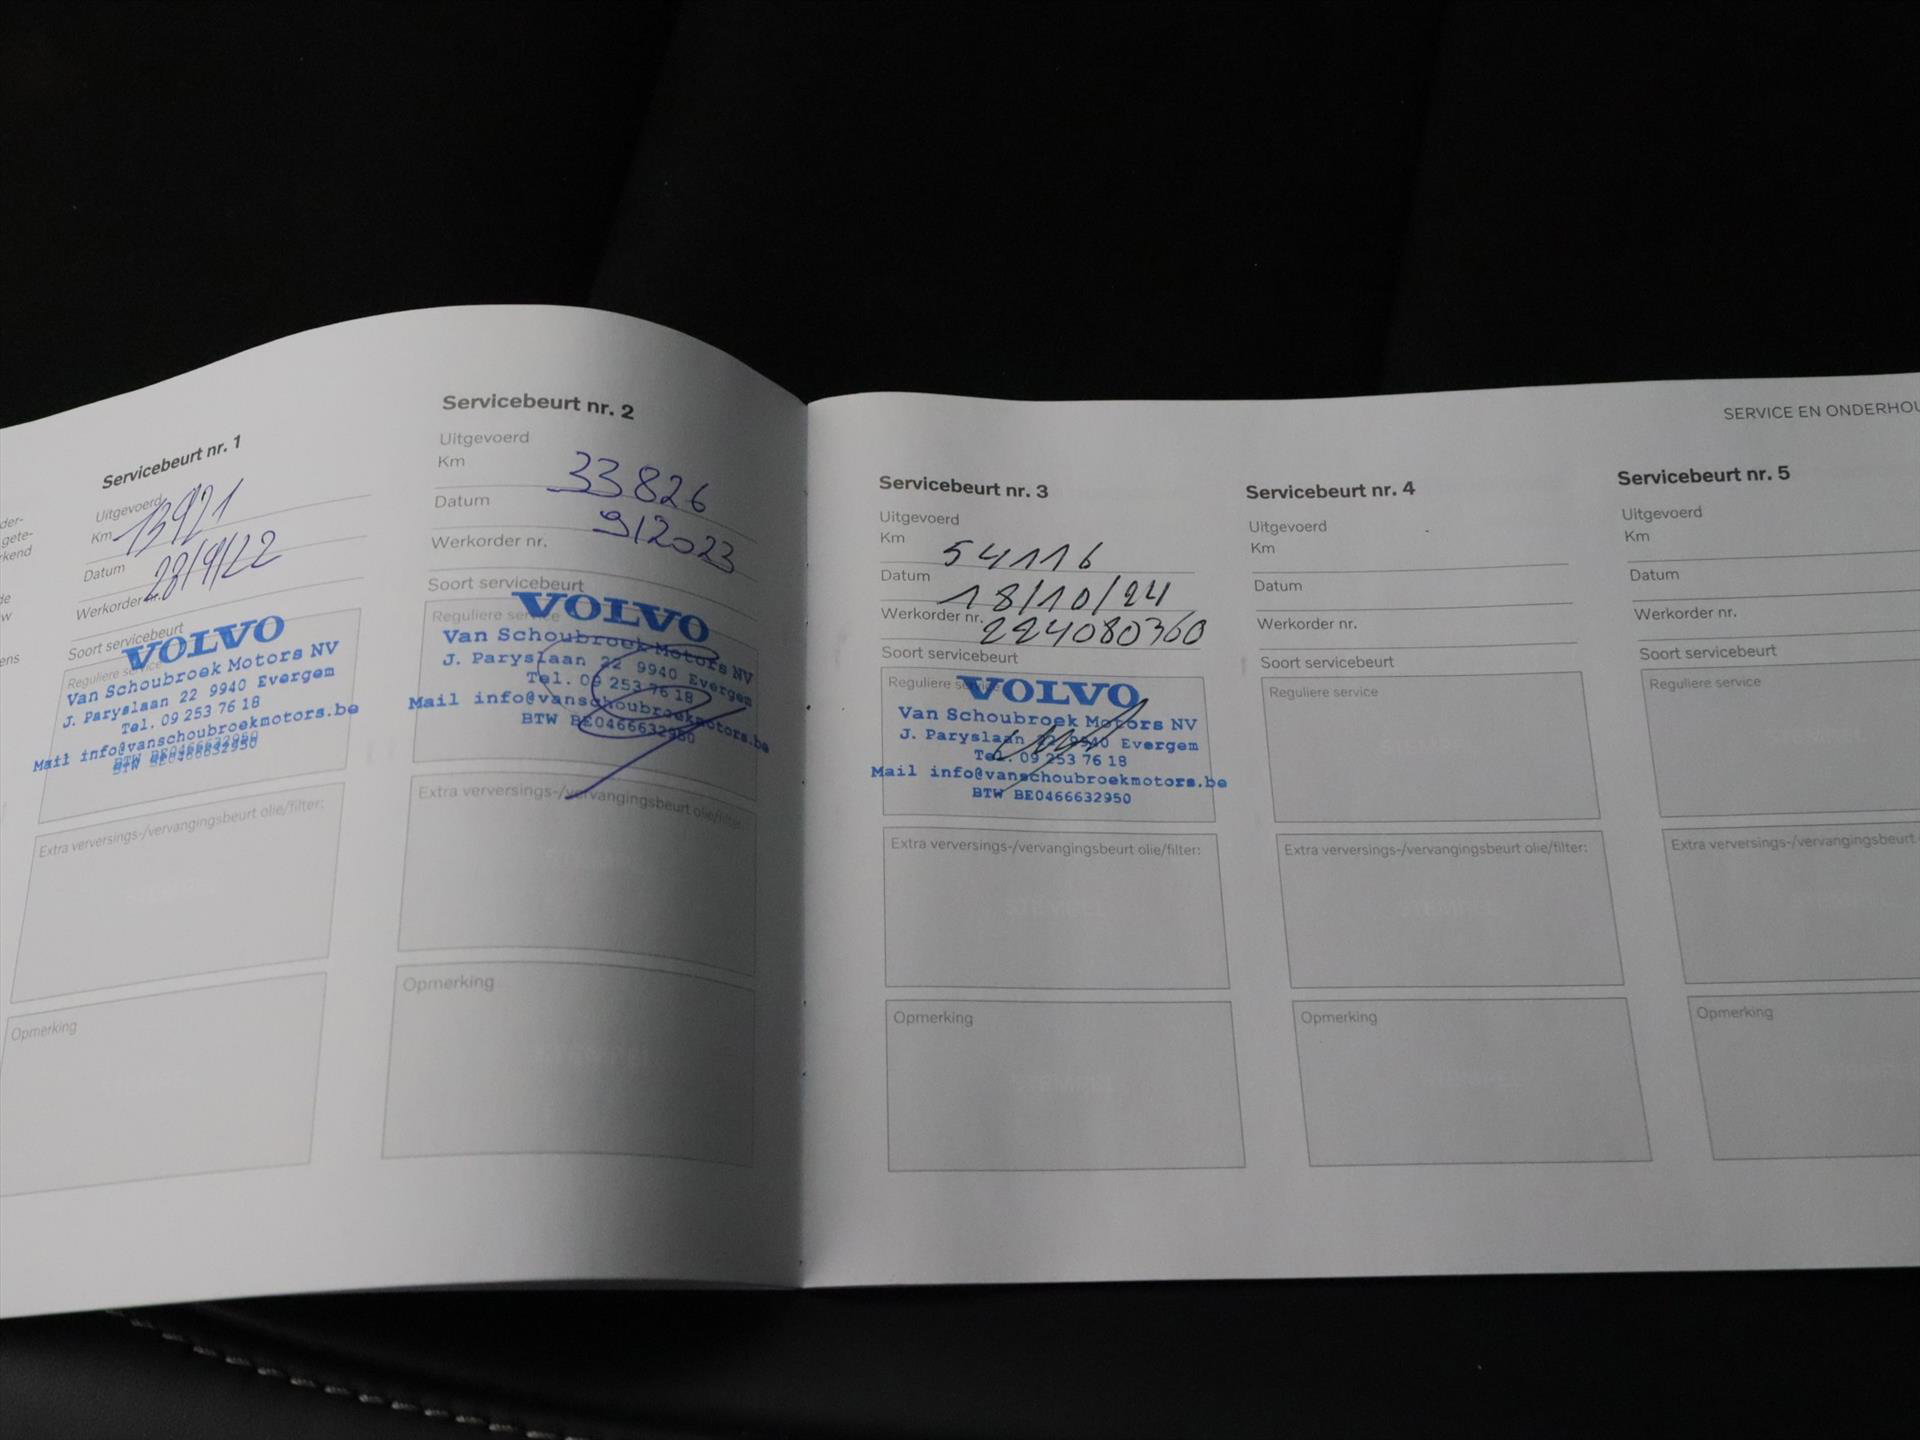 SERVICE EN ONDERHOU
der-
gete-
kend
de
w
ens
Servicebeurt nr. 1
Uitgevoerd
Km 13921
Datum 23/9/22
Werkorder nr.
Soort servicebeurt
Reguliere service
VOLVO
Van Schoubroek Motors NV
J. Paryslaan 22 9940 Evergem
Tel. 09 253 76 18
Mail info@vanschoubroekmotors.be
BTW BE0466632950
Extra verversings-/vervangingsbeurt olie/filter:
Opmerking
Servicebeurt nr. 2
Uitgevoerd
Km 33826
Datum 9/2023
Werkorder nr.
Soort servicebeurt
Reguliere service
VOLVO
Van Schoubroek Motors NV
J. Paryslaan 22 9940 Evergem
Tel. 09 253 76 18
Mail info@vanschoubroekmotors.be
BTW BE0466632950
Extra verversings-/vervangingsbeurt olie/filter:
Opmerking
Servicebeurt nr. 3
Uitgevoerd
Km 54116
Datum 18/10/24
Werkorder nr. 224080360
Soort servicebeurt
Reguliere service
VOLVO
Van Schoubroek Motors NV
J. Paryslaan 22 9940 Evergem
Tel. 09 253 76 18
Mail info@vanschoubroekmotors.be
BTW BE0466632950
Extra verversings-/vervangingsbeurt olie/filter:
STEMPEL
Opmerking
STEMPEL
Servicebeurt nr. 4
Uitgevoerd
Km
Datum
Werkorder nr.
Soort servicebeurt
Reguliere service
STEMPEL
Extra verversings-/vervangingsbeurt olie/filter:
STEMPEL
Opmerking
STEMPEL
Servicebeurt nr. 5
Uitgevoerd
Km
Datum
Werkorder nr.
Soort servicebeurt
Reguliere service
Extra verversings-/vervangingsbeurt
STEMPEL
Opmerking